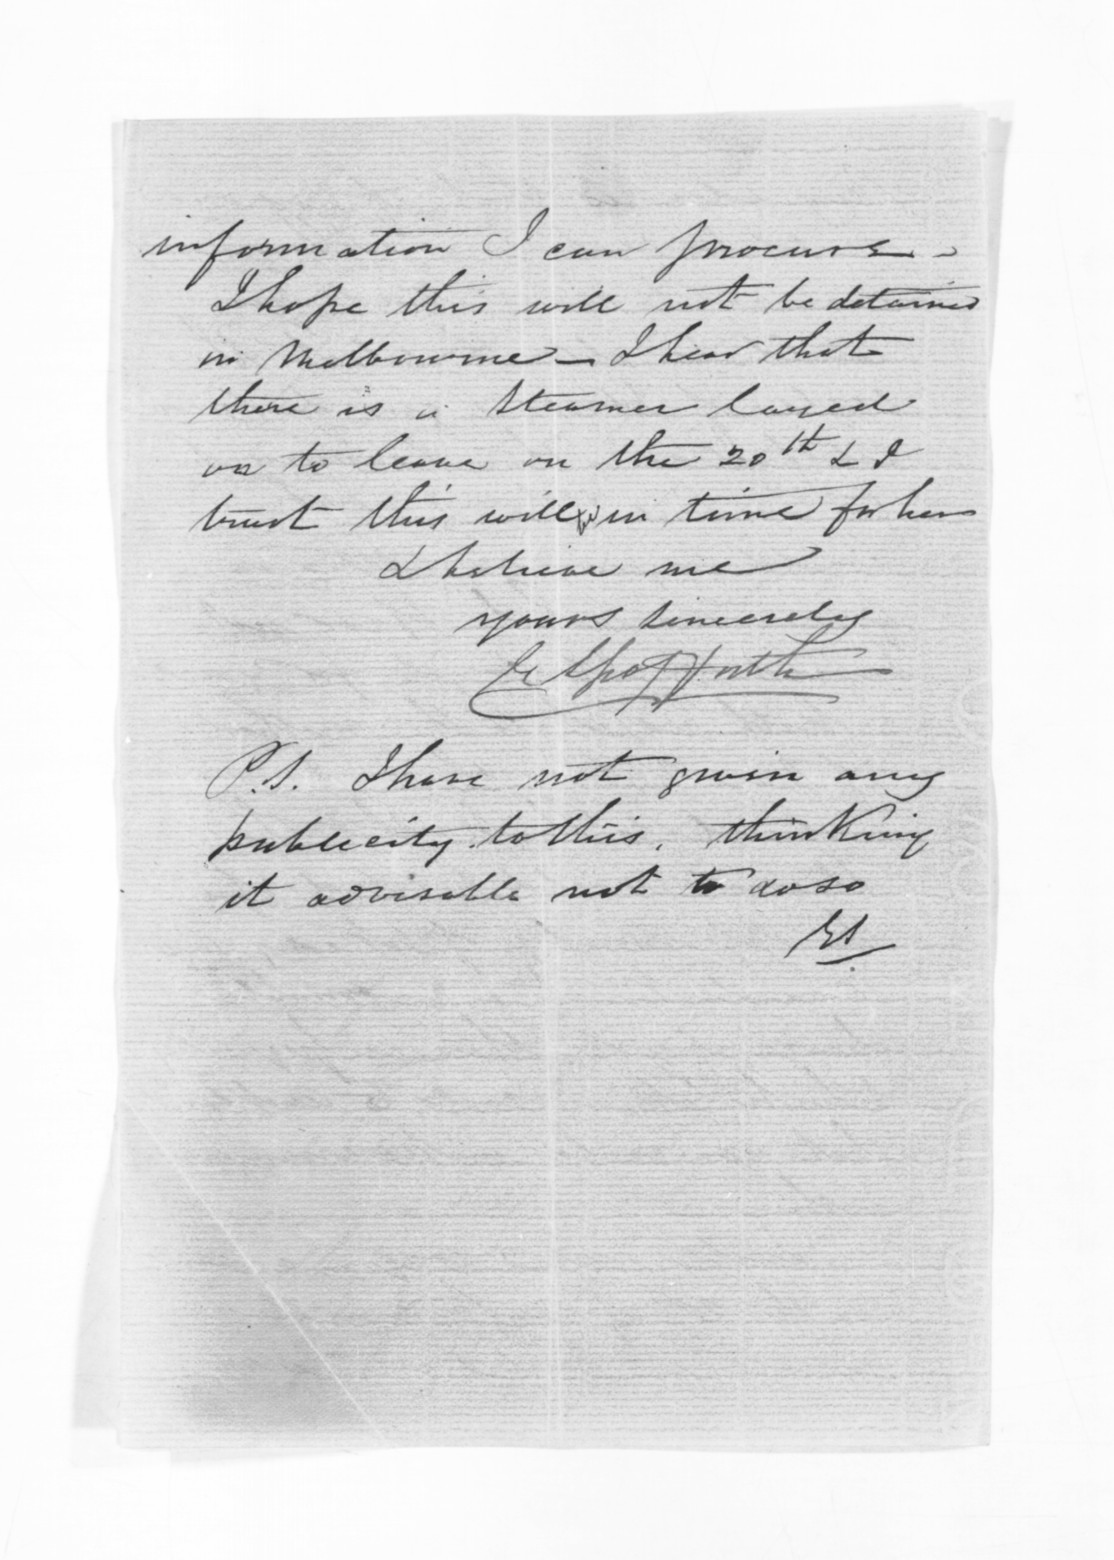 information I can procure -
I hope this will not be detained
in Melbourne - I hear that
there is a Steamer layed
on to leave on the 20th & I
trust this will in time for her
& believe me
yours sincerely
E Spofforth
P.S. I have not given any
publicity to this, thinking
it advisable not to do so
ES